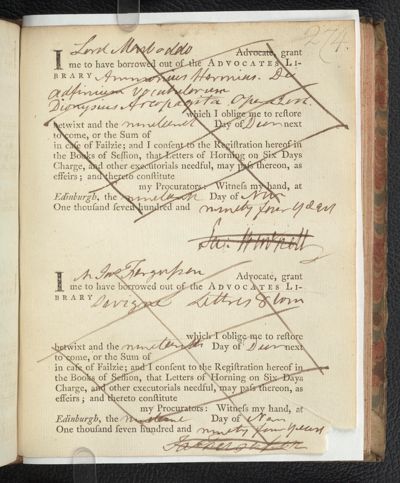 274.
I Lord Monboddo Advocate, grant
me to have borrowed out of the ADVOCATES LI-
BRARY Ammonius Hermias. De
adfinium Vocabulorum
Dionysius Areopagita Opera
which I oblige me to restore
betwixt and the nineteenth Day of Decr next
to come, or the Sum of
in case of Failzie; and I consent to the Registration hereof in
the Books of Session, that Letters of Horning on Six Days
Charge, and other executorials needful, may pass thereon, as
effeirs; and thereto constitute
my Procurators: Witness my hand, at
Edinburgh, the nineteenth Day of Nov
One thousand seven hundred and ninety four years
Ja: Burnett
I Mr Jas Fergusson Advocate, grant
me to have borrowed out of the ADVOCATES LI-
BRARY Sevigne Lettres
which I oblige me to restore
betwixt and the nineteenth Day of Decr next
to come, or the Sum of
in case of Failzie; and I consent to the Registration hereof in
the Books of Session, that Letters of Horning on Six Days
Charge, and other executorials needful, may pass thereon, as
effeirs; and thereto constitute
my Procurators: Witness my hand, at
Edinburgh, the Day of Nov
One thousand seven hundred and ninety four years
Ja Fergusson